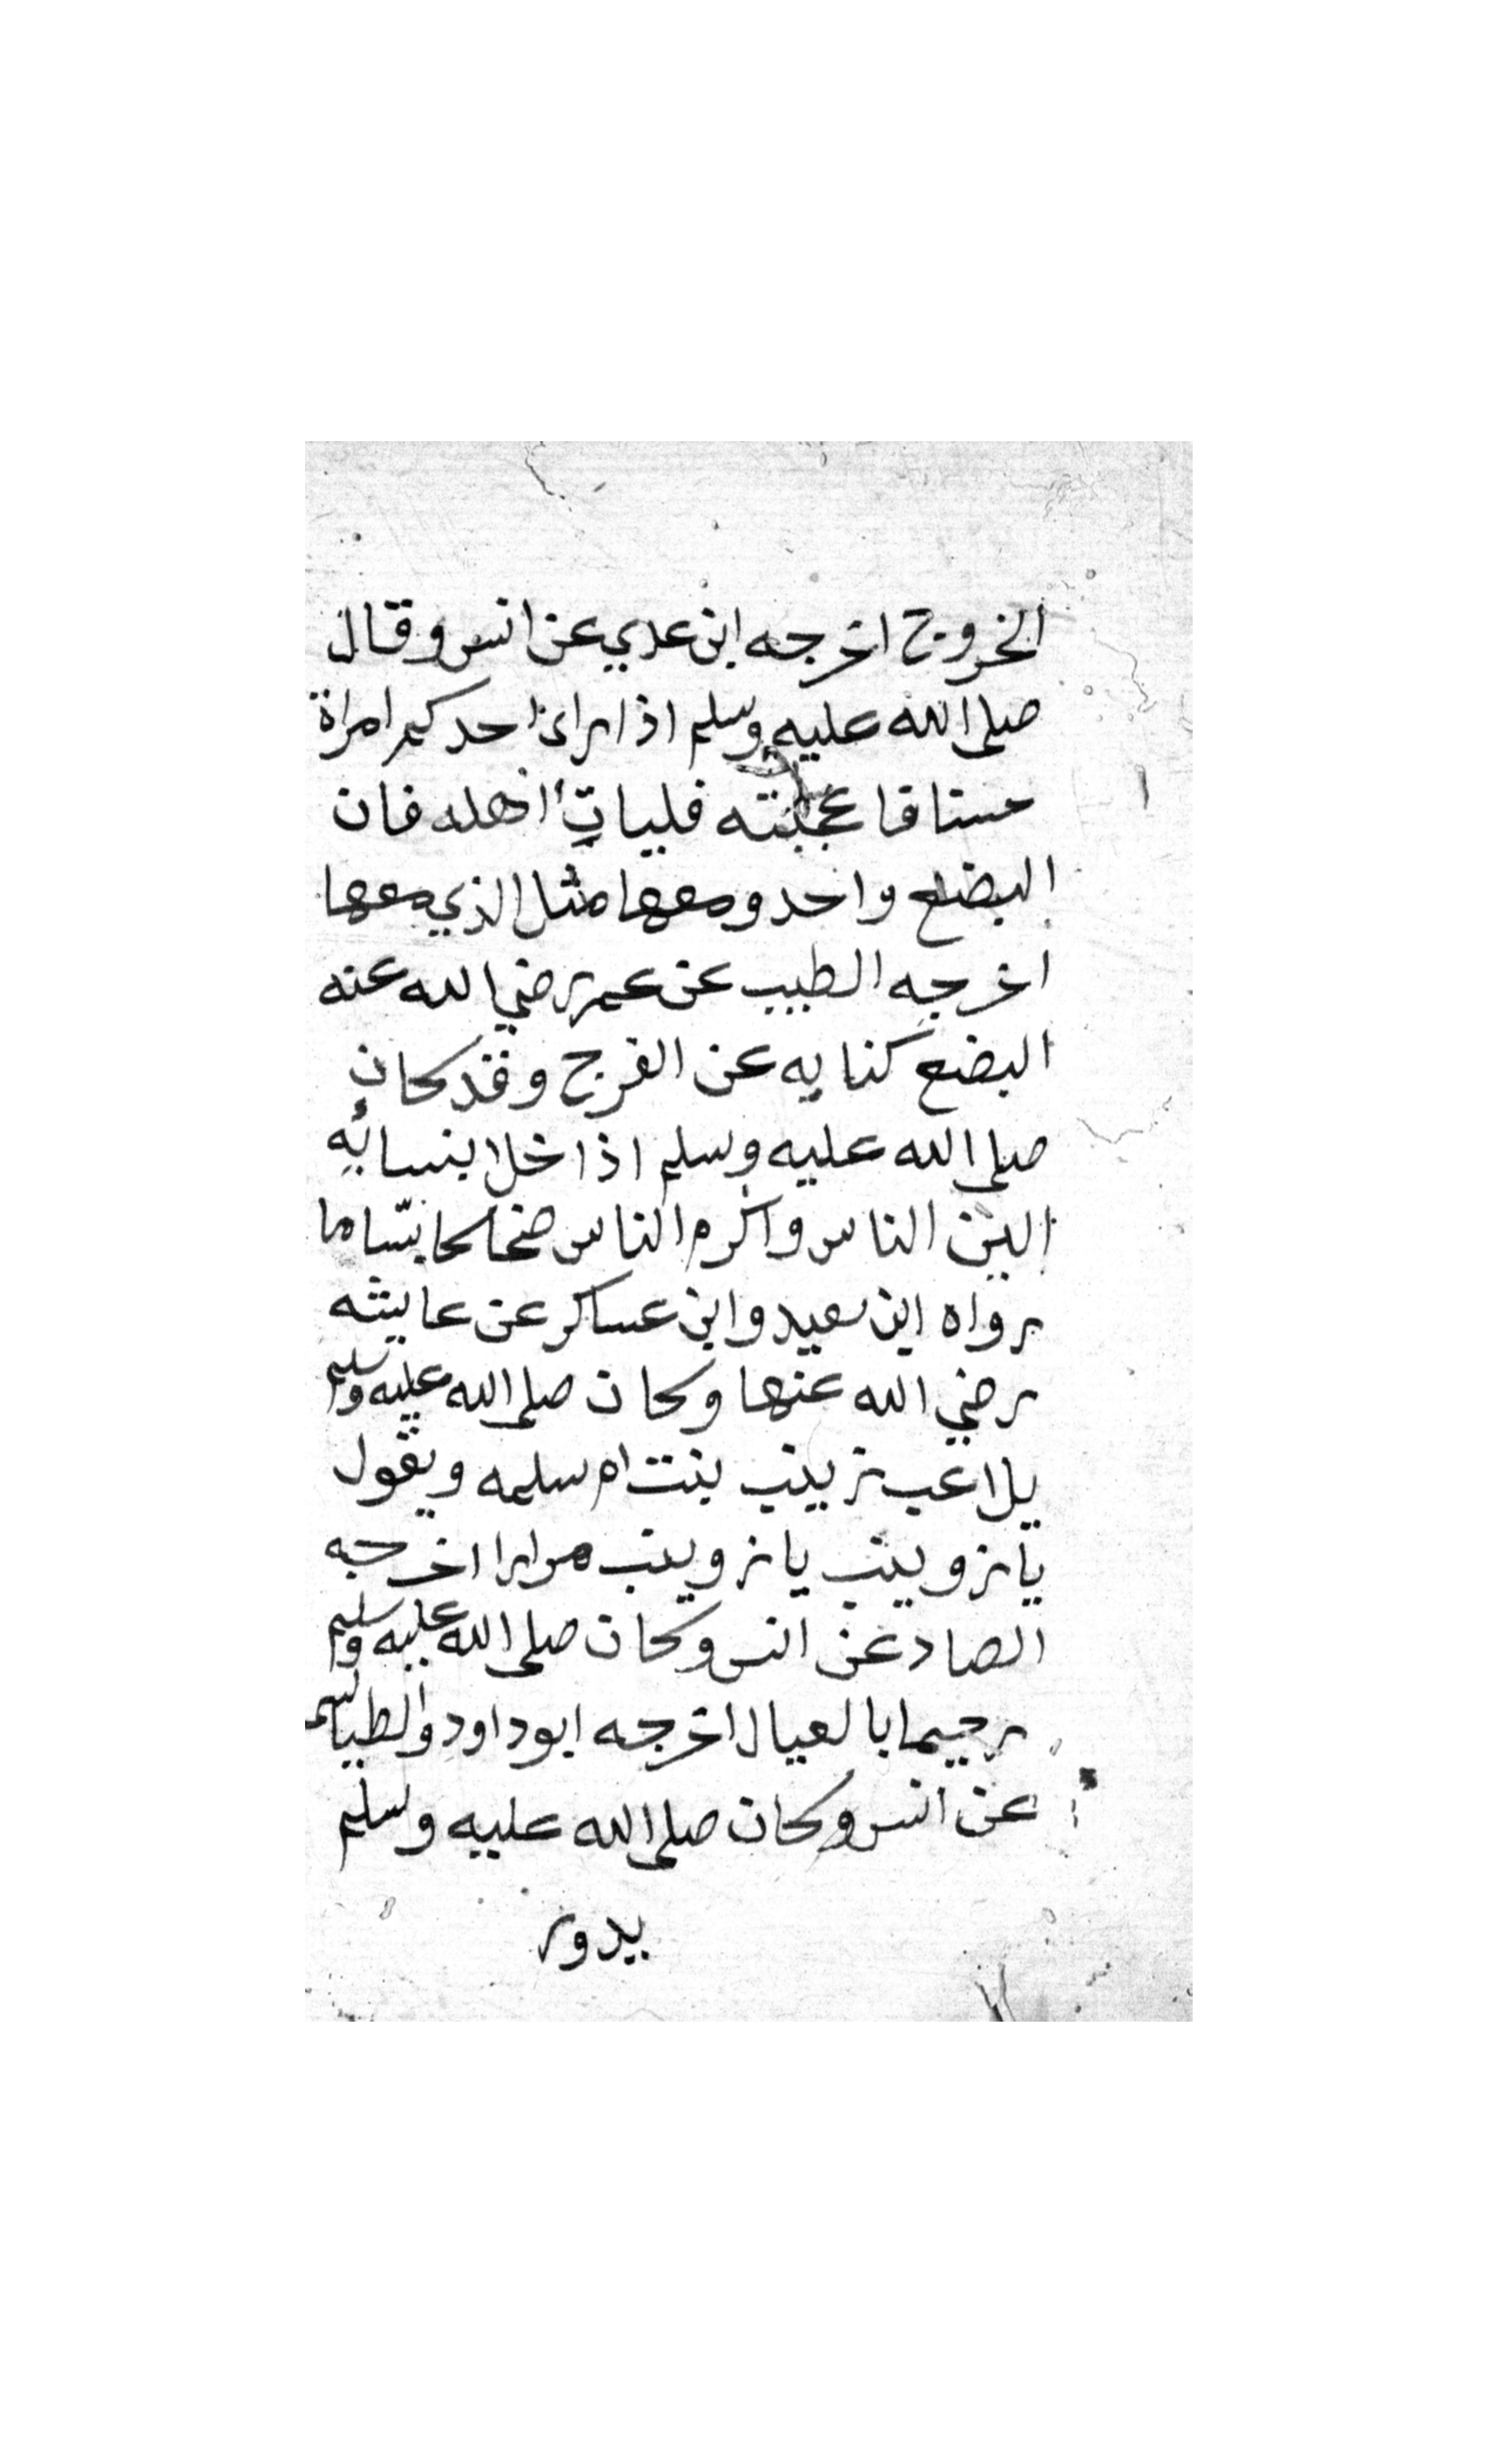 الخروج اخرجه ابن عدي عن انس وقال
صلى الله عليه وسلم اذا راى احدكم امراة
حسنا فاعجبته فليات اهله فان
البضع واحد ومعها مثل الذي معها
اخرجه الطبيب عن عمر رضي الله عنه
البضع كنايه عن الفرج وقد كان
صلى الله عليه وسلم اذا خلا بنسائه
الين الناس واكرم الناس ضحاكا بساما
رواه ابن سعيد وابن عساكر عن عايشه
رضي الله عنها وكان صلى الله عليه وسلم
يلاعب زينب بنت ام سلمه ويقول
يا زوينب يا زوينب مرارا اخرجه
الصاد عن انس وكان صلى الله عليه وسلم
رحيما بالعيال اخرجه ابوداود والطيالسي
عن انس وكان صلى الله عليه وسلم
يدور